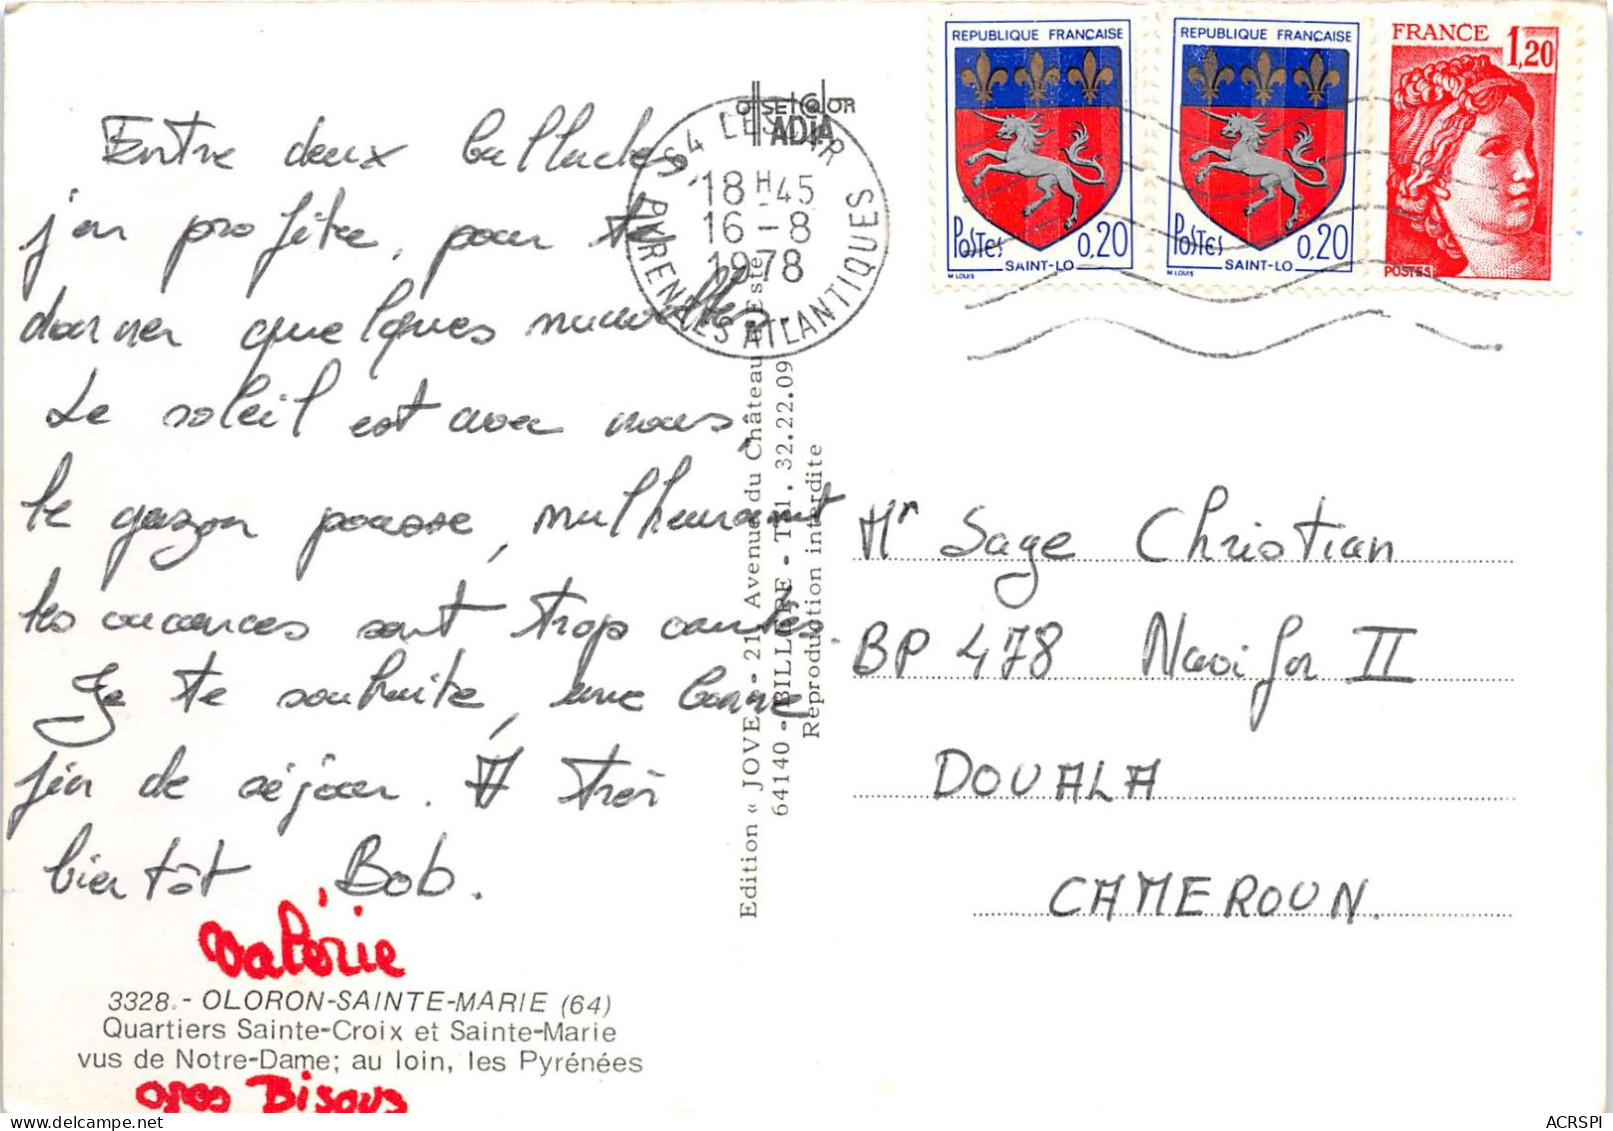 Entre deux ballades
j'en profite, pour te
donner quelques nouvelles.
Le soleil est avec nous,
le gazon pousse, malheureusement
les vacances sont trop courtes.
Je te souhaite, une bonne
fin de séjour. A très
bientôt Bob.
Valérie
3328.- OLORON-SAINTE-MARIE (64)
Quartiers Sainte-Croix et Sainte-Marie
vus de Notre-Dame; au loin, les Pyrénées
gros Bisous
offset color
ADIA
64 LESCAR
18H45
16-8
1978
PYRENEES ATLANTIQUES
Edition « JOVE - 21, Avenue du Château
64140 - BILLERE - Tél. 32.22.09
Reproduction interdite
REPUBLIQUE FRANÇAISE
POSTES
0,20
SAINT-LO
M LOUIS
REPUBLIQUE FRANÇAISE
POSTES
0,20
SAINT-LO
M LOUIS
FRANCE
1,20
POSTES
Mr Sage Christian
BP 478 Navifor II
DOUALA
CAMEROUN.
ACRSPI